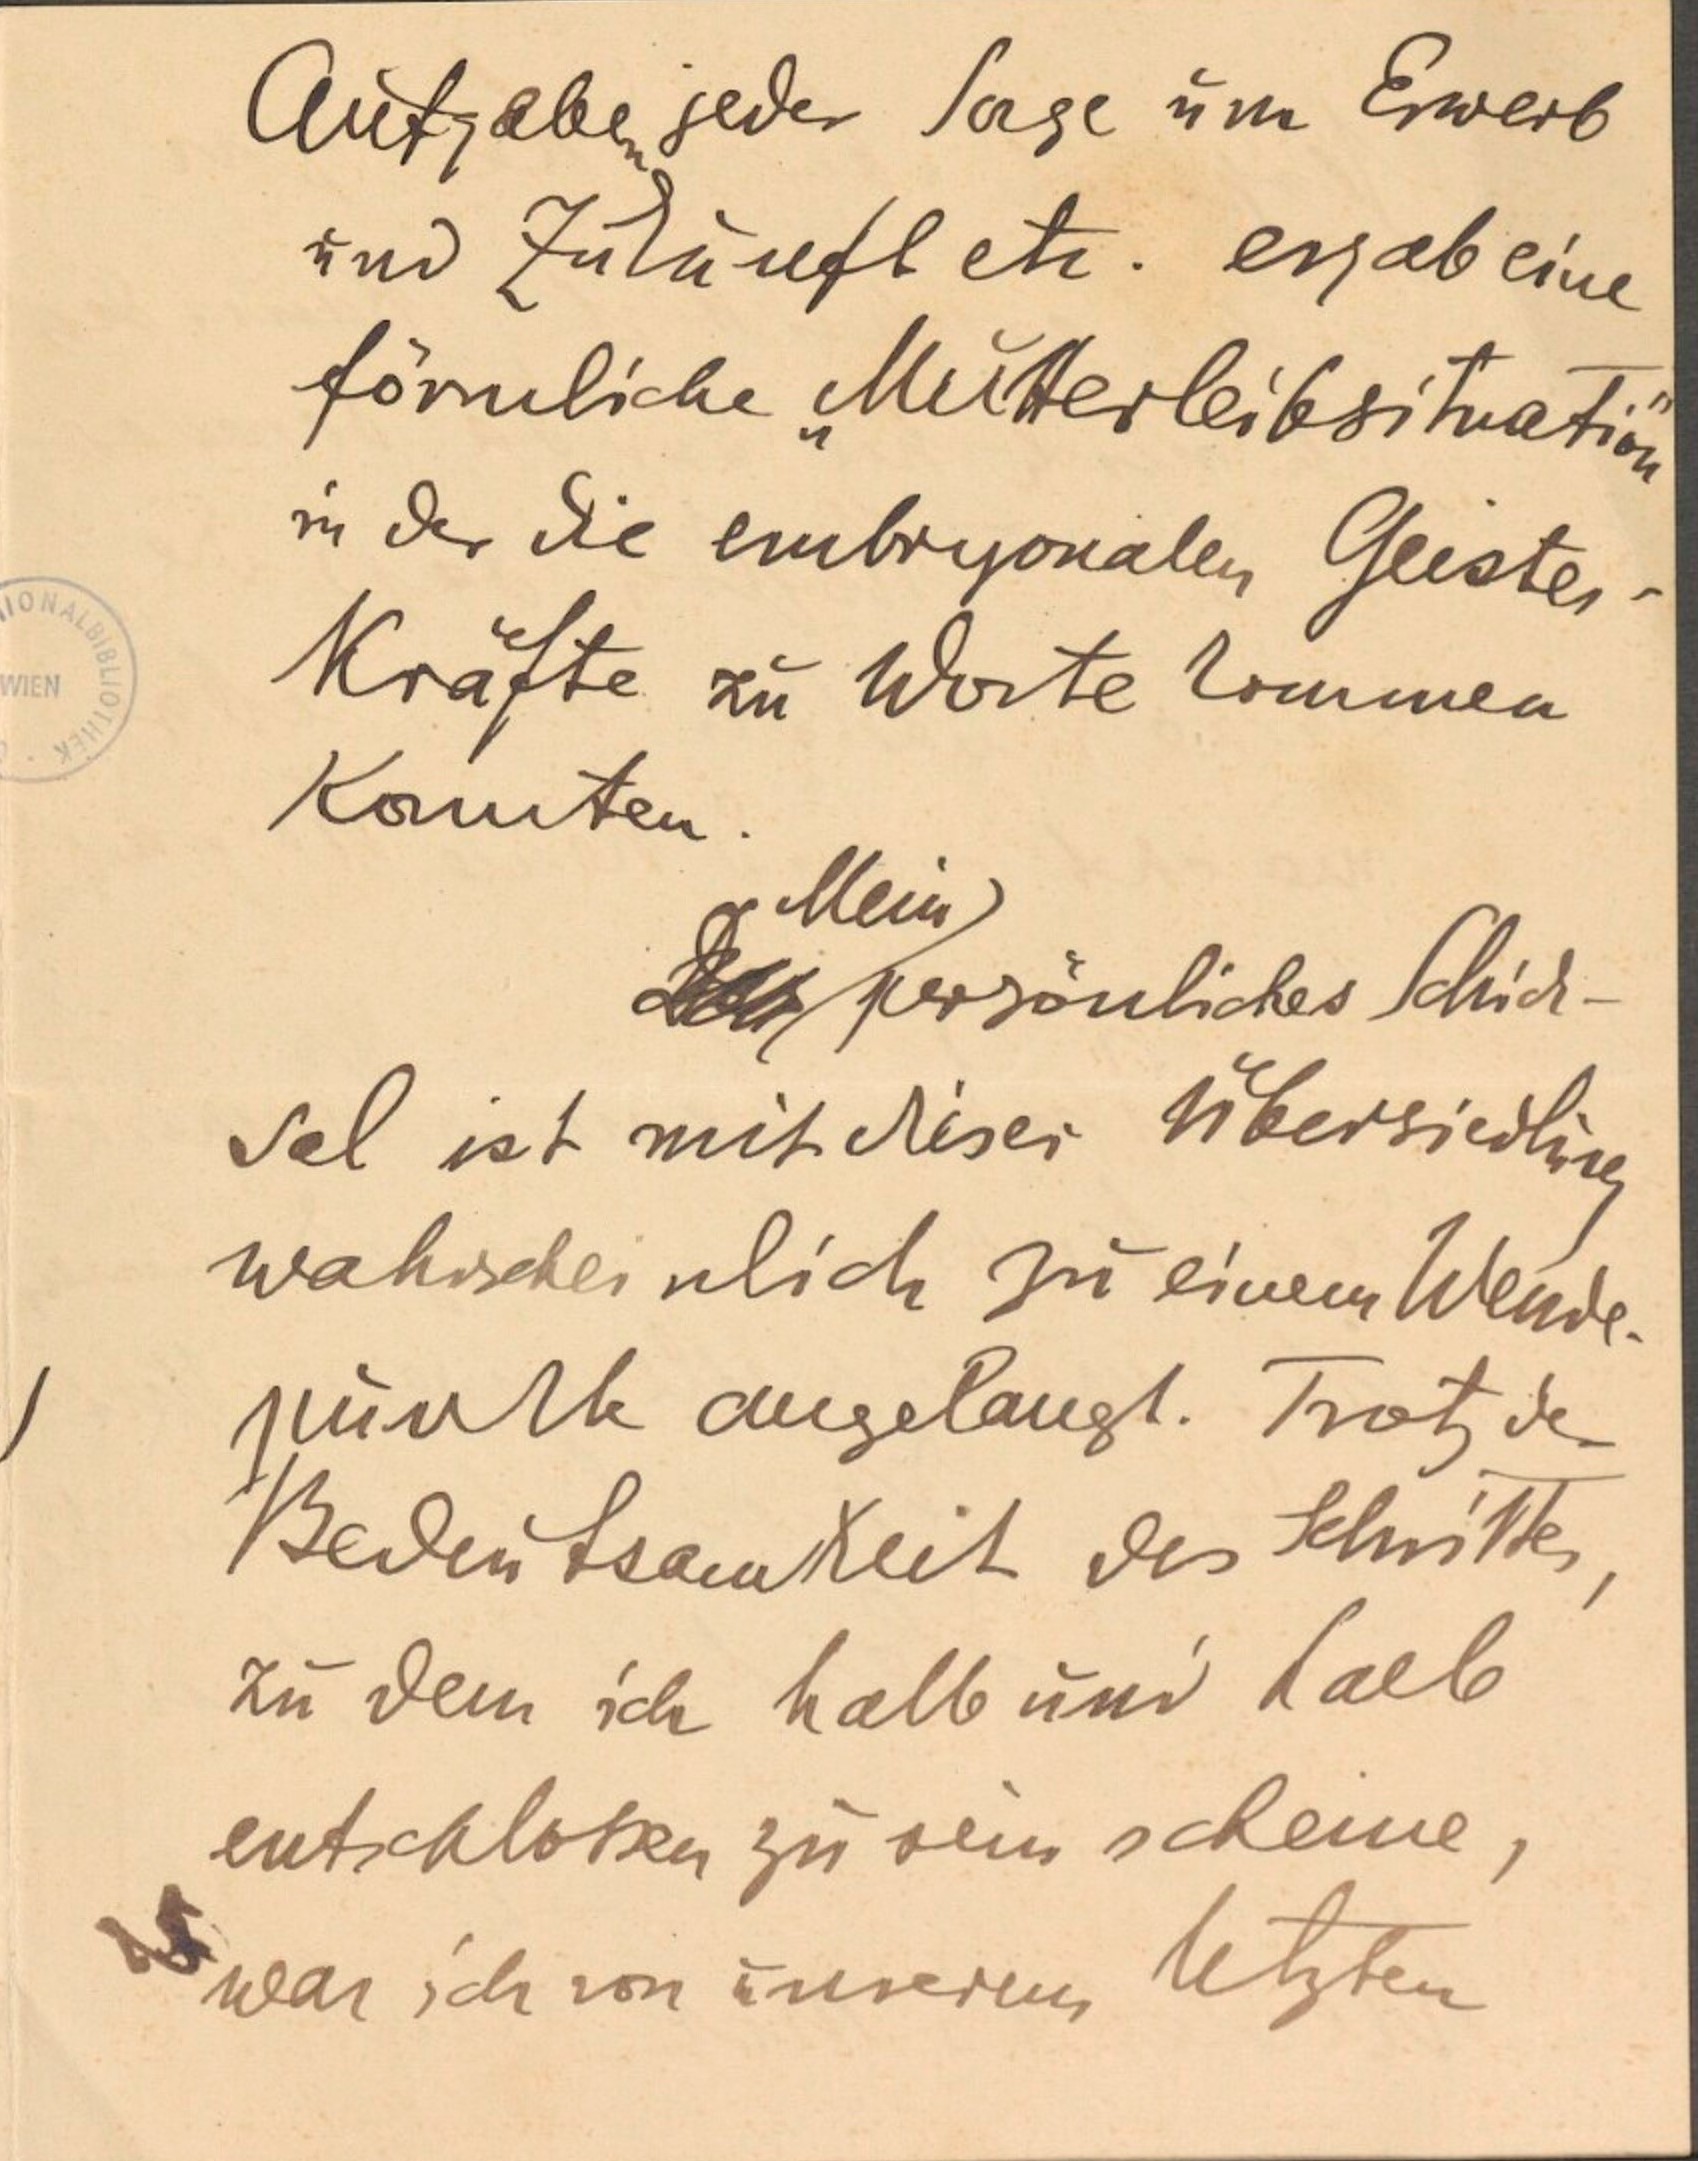 Aufgaben jeder Sorge um Erwerb
und Zukunft etc. ergab eine
förmliche „Mutterleibsituation"
in der die embryonalen Geister-
Kräfte zu Worte kommen
Konnten.
Mein
persönliches Schick-
sal ist mit dieser Übersiedlung
wahrscheinlich zu einem Wende-
punkte angelangt. Trotz der
Bedeutsamkeit des Schrittes,
zu dem ich halb und halb
entschlossen zu sein scheine,
war ich von unserem letzten
IONALBIBLIOTHEK
WIEN